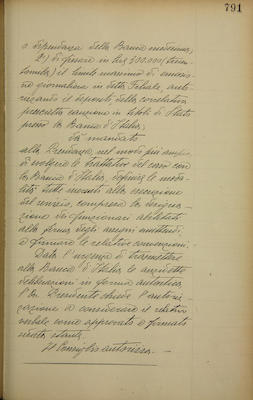 791
o dipendenza della Banca medesima;
2) di fissare in Lire 300.000 (trecentomila) il limite massimo di emissione giornaliera in detta Filiale, autorizzando il deposito della correlativa
prescritta cauzione in titoli di Stato
presso la Banca d'Italia;
dà mandato
alla Presidenza, nel modo più ampio,
di svolgere le trattative del caso con
la Banca d'Italia, definire le modalità tutte inerenti alla esecuzione
del servizio, compresa la designazione dei funzionari abilitati
alla firma degli assegni emittendi
e firmare le relative convenzioni.
Data l'urgenza di trasmettere
alla Banca d'Italia le anzidette
deliberazioni in forma autentica,
l'On. Presidente chiede l'autorizzazione a considerare il relativo
verbale come approvato e firmato
seduta stante.
Il Consiglio autorizza.